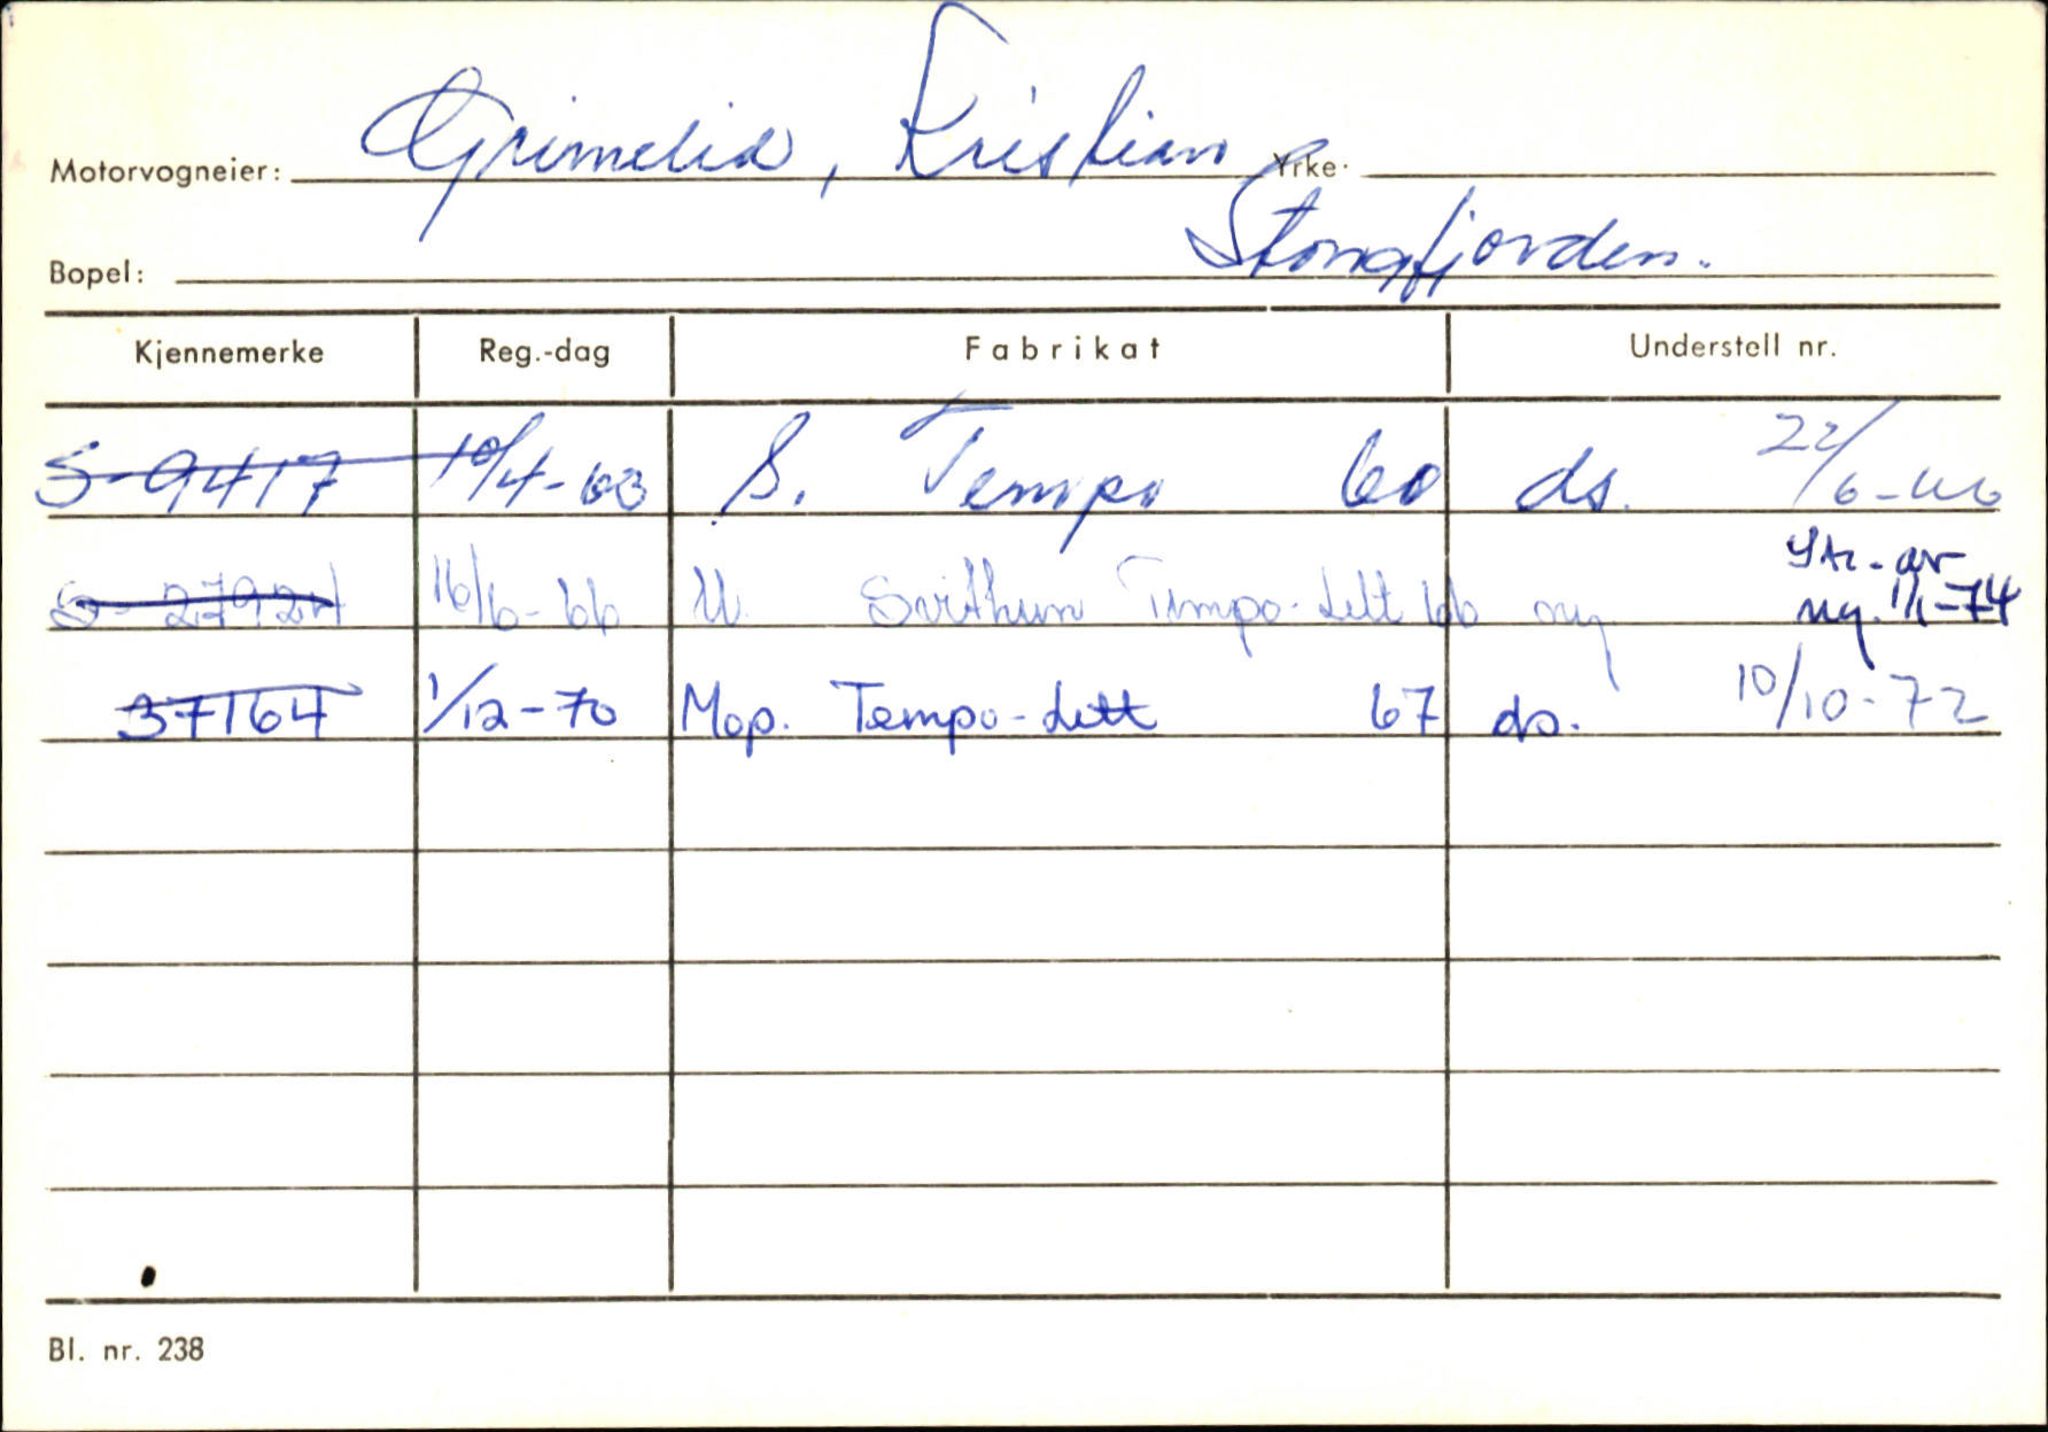 Motorvogneier: Grimelid, Kristian Yrke:
Bopel: Stongfjorden.
Kjennemerke Reg.-dag Fabrikat Understell nr.
S-9417 10/4-63 S. Tempo 60 ds. 22/6-66
S-27924 16/6-66 M. Svithun Tempo-Lett 66 ny Str. av ny. 1/1-74
37164 1/12-70 Mop. Tempo-Lett 67 ds. 10/10-72
Bl. nr. 238